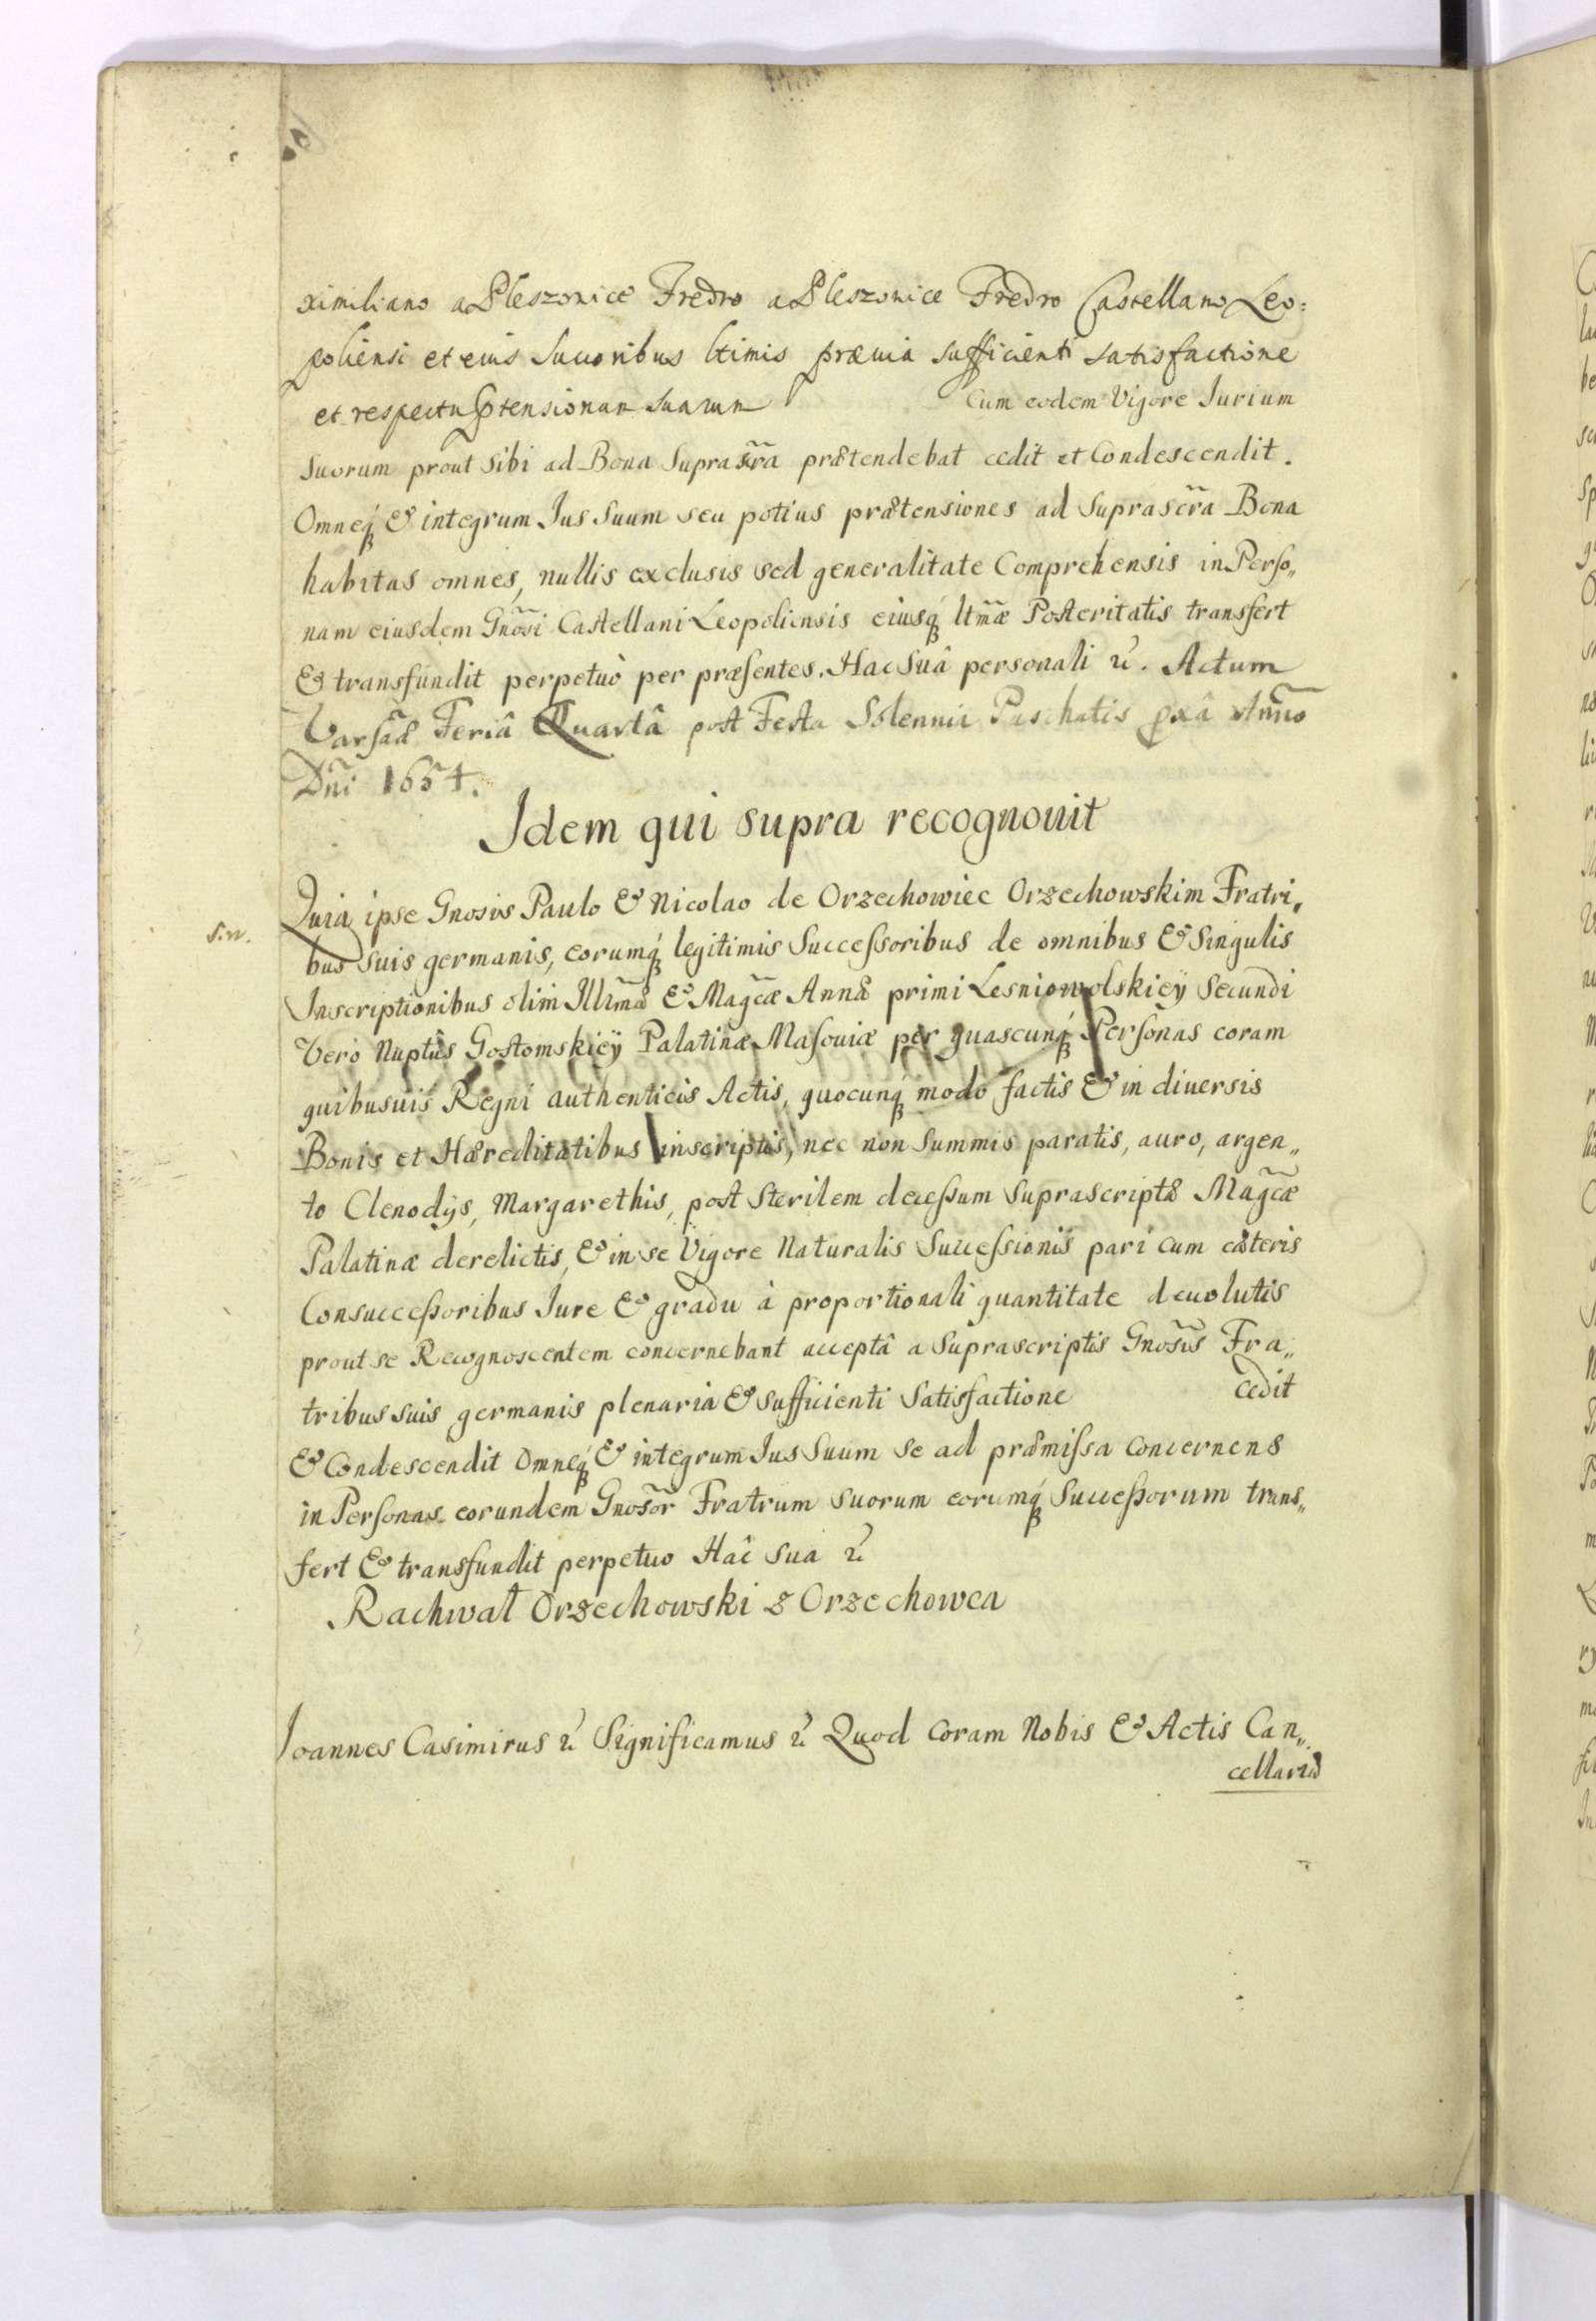 ximiliano a Pleszowice Fredro a Pleszowice Fredro Castellano Leo:
poliensi et eius Succoribus ltimis præuia sufficienti satisfactione
et respectu Ptensionum suarum Cum eodem Vigore Jurium
Suorum prout sibi ad Bona Suprascra prætendebat cedit et Condescendit.
Omneq́ & integrum Jus Suum seu potius prætensiones ad Suprascra Bona
habitas omnes, nullis exclusis sed generalitate Comprehensis in Perso„
nam eiusdem Gnosi Castellani Leopoliensis eiusq́ ltmæ Posteritatis transfert
& transfundit perpetuò per præsentes. Hac Suâ personali &c. Actum
Varsaæ Feriâ Quartâ post Festa Solennia Paschatis pxâ Anno
Dni 1654.
Idem qui supra recognouit
S.w.
Quia ipse Gnosis Paulo & Nicolao de Orzechowiec Orzechowskim Fratri„
bus suis germanis, eorumq́ legitimis Successoribus de omnibus & Singulis
Inscriptionibus olim Illrmæ & Magcæ Annæ primi Lesniowolskiey Secundi
Vero Nuptûs Gostomskiey Palatinæ Masouiæ per quascunq́ Personas coram
quibusuis Regni authenticis Actis, quocunq́ modo factis & in diuersis
Bonis et Hæreditatibus inscriptis, nec non Summis paratis, auro, argen„
to Clenodÿs, Margarethis, post Sterilem decessum Suprascriptæ Magcæ
Palatinæ derelictis, & in se Vigore Naturalis Successionis pari cum cæteris
Consuccessoribus Jure & gradu à proportionali quantitate deuolutis
prout se Recognoscentem concernebant acceptâ a Suprascriptis Gnosis Fra„
tribus suis germanis plenaria & sufficienti Satisfactione cedit
& Condescendit Omneq́ & integrum Jus Suum se ad præmissa Concernens
in Personas eorundem Gnosor Fratrum Suorum eorumq́ Successorum trans„
fert & transfundit perpetuo Hac Sua &c
Rachwał Orzechowski z Orzechowca
Joannes Casimirus &c Significamus &c Quod Coram Nobis & Actis Can„
cellariæ